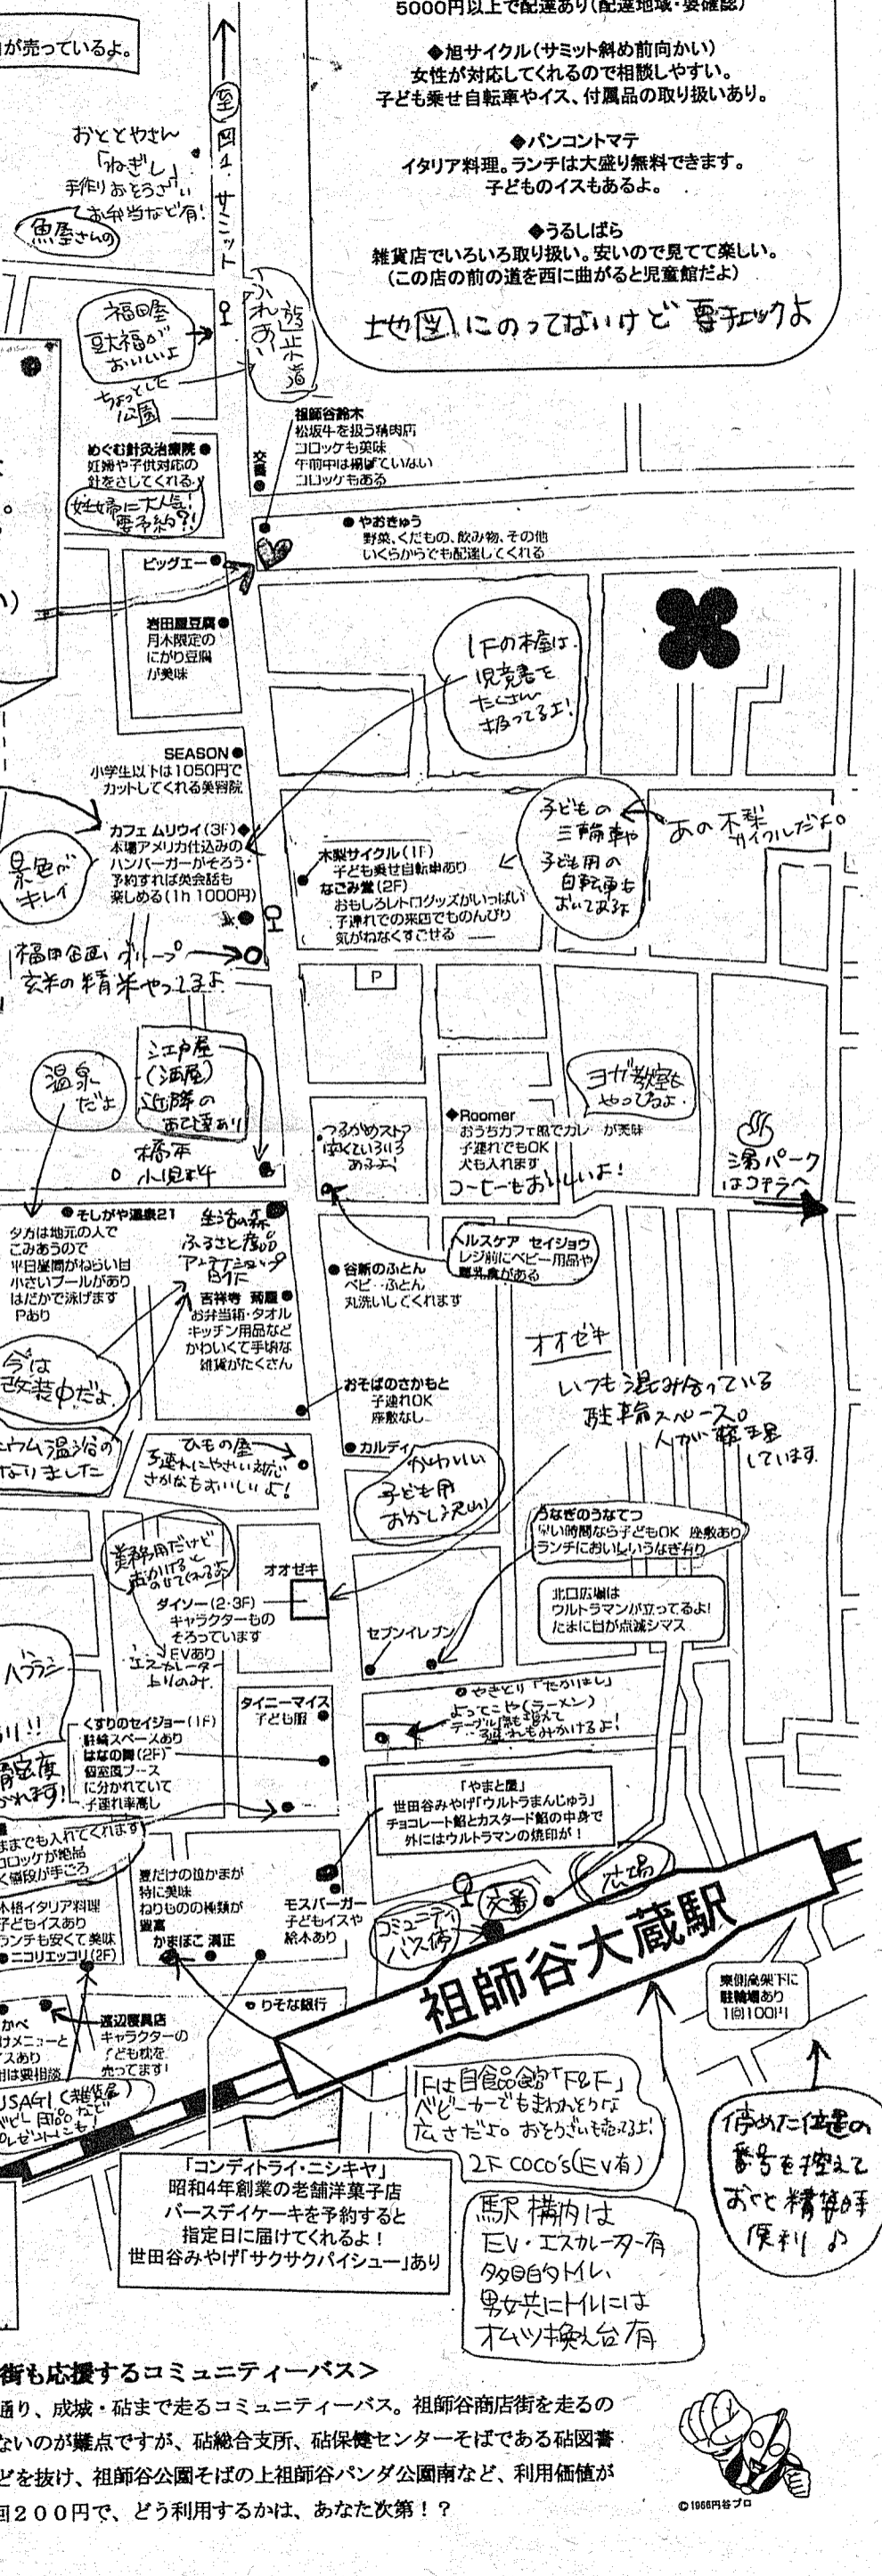 5000円以上で配達あり(配達地域・要確認)
が売っているよ。
◆旭サイクル(サミット斜め前向かい)
女性が対応してくれるので相談しやすい。
子ども乗せ自転車やイス、付属品の取り扱いあり。
◆パンコントマテ
イタリア料理。ランチは大盛り無料できます。
子どものイスもあるよ。
◆うるしばら
雑貨店でいろいろ取り扱い。安いので見てて楽しい。
(この店の前の道を西に曲がると児童館だよ)
地図にのってないけど要チェックよ
至 図1.サミット
おととやさん
「ねぎし」
手作りおそうざい
お弁当など有!
魚屋さんの
福田屋
豆大福が
おいしいよ
ふれあい
遊歩道
ちょっとした
公園
祖師谷鈴木
松坂牛を扱う精肉店
コロッケも美味
午前中は揚げていない
コロッケもある
交番
めぐむ針灸治療院
妊婦や子供対応の
針をさしてくれる
妊婦に大人気!
要予約?!
やおきゅう
野菜、くだもの、飲み物、その他
いくらからでも配達してくれる
ビッグエー
岩田屋豆腐
月木限定の
にがり豆腐
が美味
1Fの本屋は
児童書を
たくさん
扱ってるよ!
SEASON
小学生以下は1050円で
カットしてくれる美容院
カフェ ムリウイ(3F)
本場アメリカ仕込みの
ハンバーガーがそろう・
予約すれば英会話も
楽しめる(1h 1000円)
景色が
キレイ
木梨サイクル(1F)
子ども乗せ自転車あり
なごみ堂(2F)
おもしろレトログッズがいっぱい
子連れでの来店でものんびり
気がねなくすごせる
子どもの
三輪車や
子ども用の
自転車も
おいてあるよ
あの木梨
サイクルだよ。
福田企画グループ
玄米の精米やってるよ
P
江戸屋
(酒屋)
近隣の
温泉
だよ
橋本
小児科
つるかめストア
安くていろいろ
あるよ!
ヨガ教室も
やってるよ.
◆Roomer
おうちカフェ風でカレーが美味
子連れでもOK
犬も入れます
コーヒーもおいしいよ!
湯パーク
はコチラへ
そしがや温泉21
夕方は地元の人で
こみあうので
平日昼間がねらい目
小さいプールがあり
はだかで泳げます
Pあり
生活の森
ふるさと産品
アンテナショップ
吉祥寺 菊屋
お弁当箱・タオル
キッチン用品など
かわいくて手頃な
雑貨がたくさん
ヘルスケア セイジョウ
レジ前にベビー用品や
離乳食がある
谷新のふとん
ベビーふとん
丸洗いしてくれます
今は
改装中だよ
ウム温浴の
なりました
オオゼキ
いつも混み合っている
駐輪スペース。
人が整理
しています
おそばのさかもと
子連れOK
座敷なし
カルディ
かわいい
子ども用
おかし沢山
ひもの屋
子連れにやさしい対応
さかなもおいしいよ!
うなぎのうなてつ
早い時間なら子どもOK 座敷あり
ランチにおいしいうなぎ有り
業務用だけど
声かけると
のせてくれるよ
オオゼキ
ダイソー(2・3F)
キャラクターもの
そろっています
EVあり
エスカレーター
上りのみ
北口広場は
ウルトラマンが立ってるよ!
たまに目が点滅シマス
セブンイレブン
やきとり「たかはし」
よってこや(ラーメン)
テーブル席も増えて
子連れもみかけるよ!
ハブラシ
タイニーマイス
子ども服
くすりのセイジョー(1F)
駐輪スペースあり
はなの舞(2F)
個室風ブース
に分かれていて
子連れ率高し
「やまと屋」
世田谷みやげ「ウルトラまんじゅう」
チョコレート餡とカスタード餡の中身で
外にはウルトラマンの焼印が!
ままでも入れてくれます
コロッケが絶品
く値段が手ごろ
本格イタリア料理
子どもイスあり
ランチも安くて美味
ニコリエッコリ(2F)
夏だけの泣かまが
特に美味
ねりものの種類が
豊富
かまぼこ 満正
モスバーガー
子どもイスや
絵本あり
コミュニティ
バス停
交番
広場
祖師谷大蔵駅
東側高架下に
駐輪場あり
1回100円
りそな銀行
渡辺寝具店
キャラクターの
子ども枕を
売ってます!
かべ
けメニューと
イスあり
USAGI(雑貨屋)
ベビー用品など
プレゼントにも!
1Fは自食品館「F&F」
ベビーカーでもまわれそうな
広さだよ。おそうざいも売ってるよ!
2F COCO's(EV有)
停めた位置の
番号を控えて
おくと精算時
便利♪
「コンディトライ・ニシキヤ」
昭和4年創業の老舗洋菓子店
バースデイケーキを予約すると
指定日に届けてくれるよ!
世田谷みやげ「サクサクパイシュー」あり
駅構内は
EV・エスカレーター有
多目的トイレ、
男女共にトイレには
オムツ換え台有
街も応援するコミュニティーバス>
通り、成城・砧まで走るコミュニティーバス。祖師谷商店街を走るの
ないのが難点ですが、砧総合支所、砧保健センターそばである砧図書
どを抜け、祖師谷公園そばの上祖師谷パンダ公園南など、利用価値が
回200円で、どう利用するかは、あなた次第!?
©1966円谷プロ